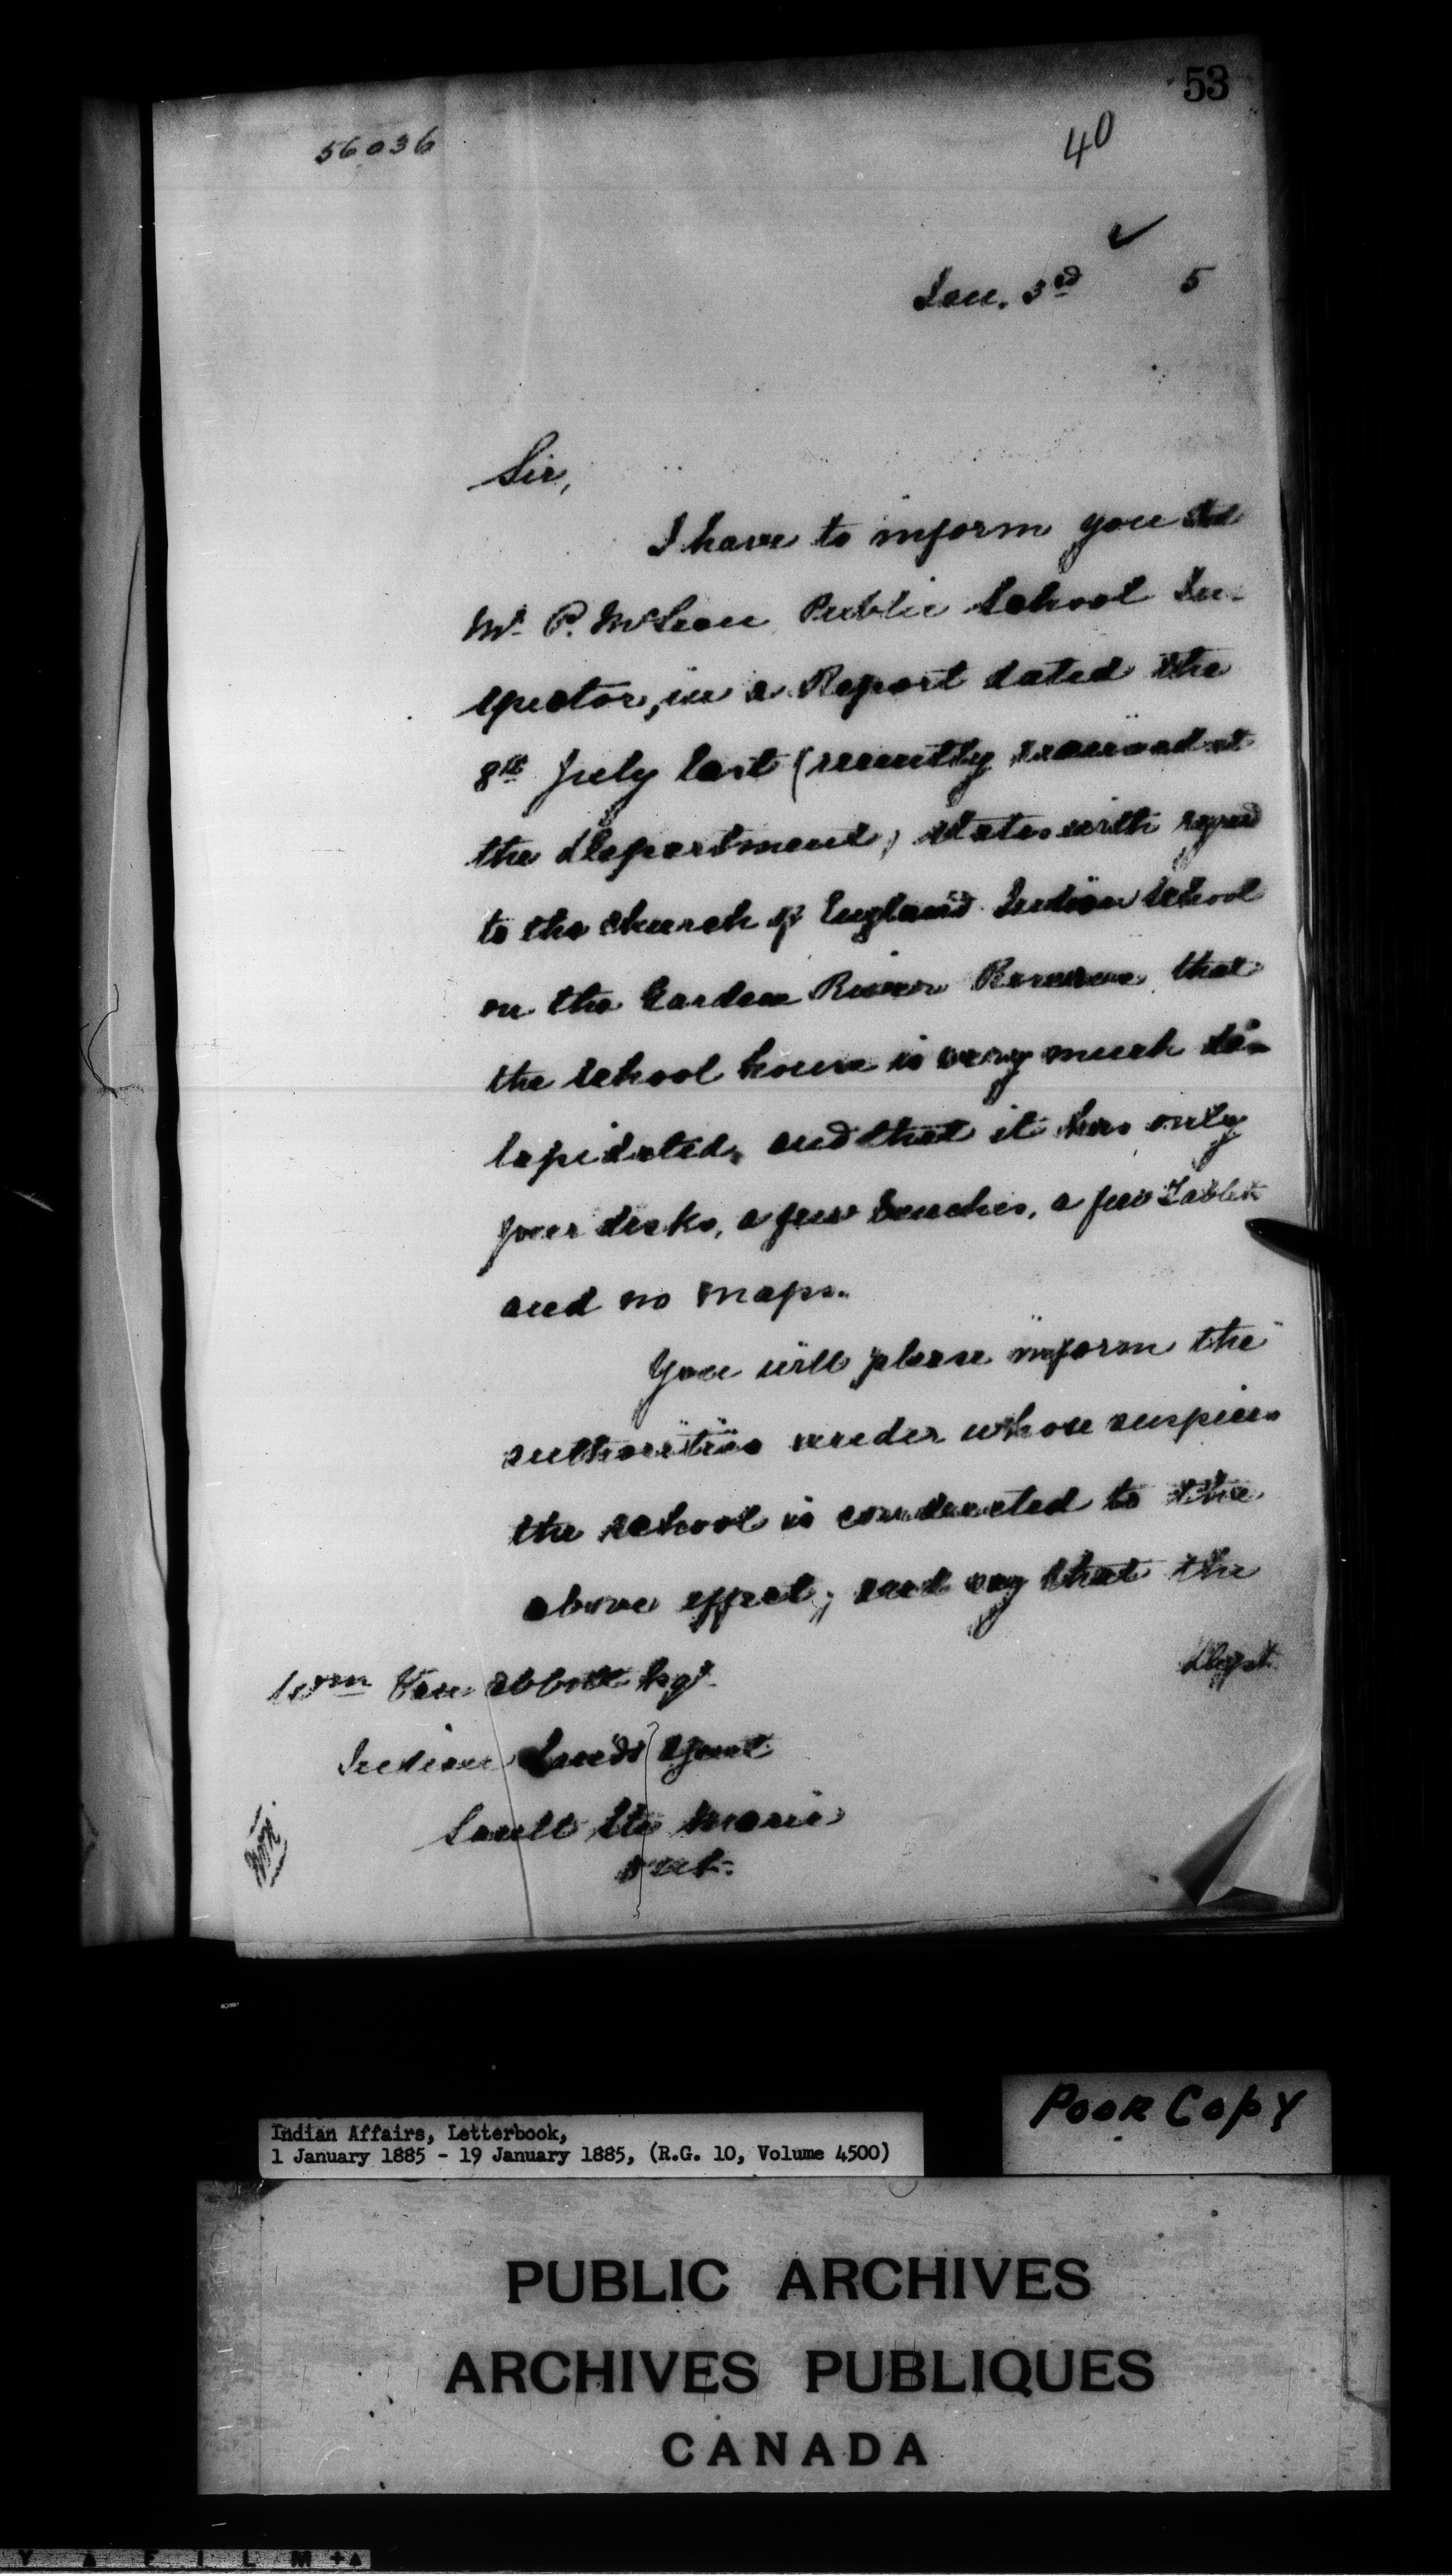 53
40
56036
Jan. 3rd 5
Sir,
I have to inform you that
Mr. P. McLean Public School In-
spector, in a Report dated the
8th July last (recently received at
the Department, states with regard
to the Church of England Indian School
on the Garden River Reserve that
the school house is very much di-
lapidated, and that it has only
four desks, a few benches, a few Tablets
and no maps.
You will please inform the
authorities under whose auspices
the school is conducted to the
above effect, and say that the
Dept.
Wm Van Abbott Esqr.
Indian Lands Agent
Sault Ste Marie
Ont.
Poor Copy
Indian Affairs, Letterbook,
1 January 1885 - 19 January 1885, (R.G. 10, Volume 4500)
PUBLIC ARCHIVES
ARCHIVES PUBLIQUES
CANADA